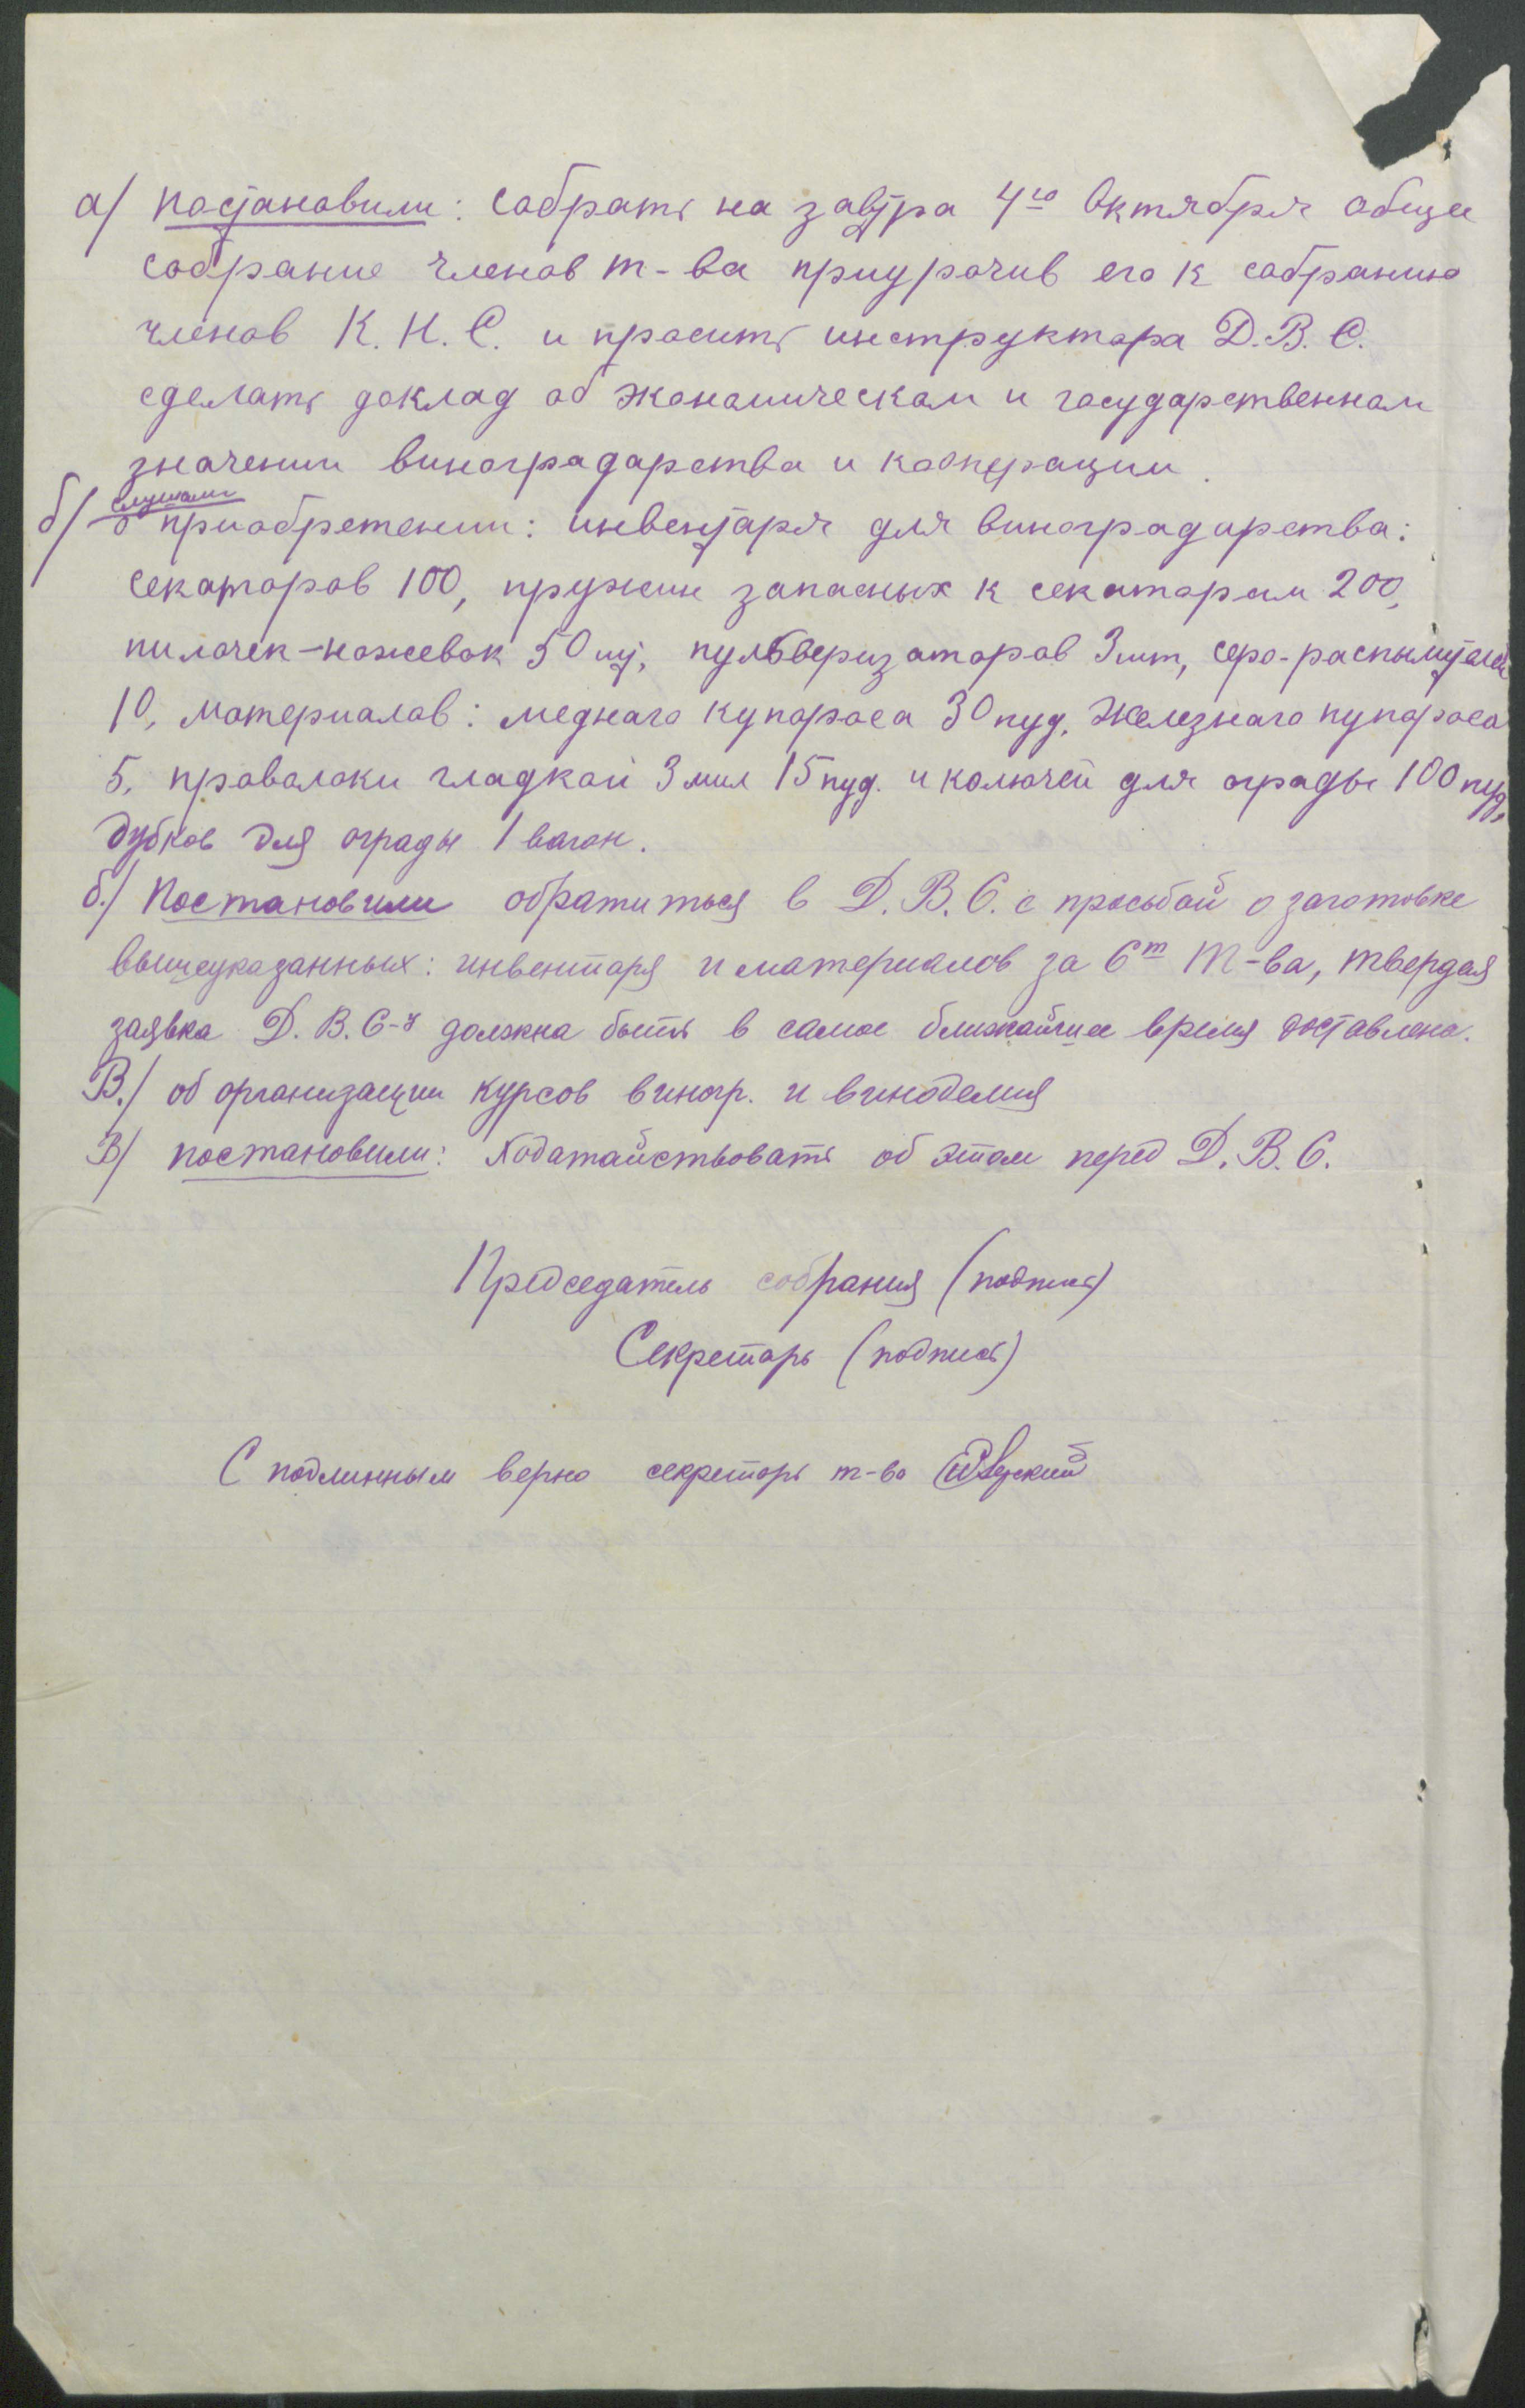 а/ Постановили: собрать на завтра 4го Октября общее
собрание членов т-ва приурочив его к собранию
членов К.Н.С. и просить инструктора Д.В.С.
сделать доклад об экономическом и государственном
значении виноградарства и кооперации.
слушали
б/ о приобретении: инвентаря для виноградарства:
секаторов 100, пружин запасных к секаторам 200,
пилочек-ножевок 50 шт, пульверизаторов 3 шт, серо-распылителей
10, материалов: меднаго купороса 30 пуд. Железнаго купороса
5, проволоки гладкой 3 мил 15 пуд. и колючей для ограды 100 пуд,
дубков для ограды 1 вагон.
б./ Постановили обратиться в Д.В.С. с просьбой о заготовке
вышеуказанных: инвентаря и материалов за Ст Т-ва, твердая
заявка Д.В.С-у должна быть в самое ближайшее время доставлена.
В./ об организации курсов виногр. и виноделия
В/ постановили: Ходатайствовать об этом перед Д.В.С.
Председатель собрания (подпись)
Секретарь (подпись)
С подлинным верно секретарь т-ва